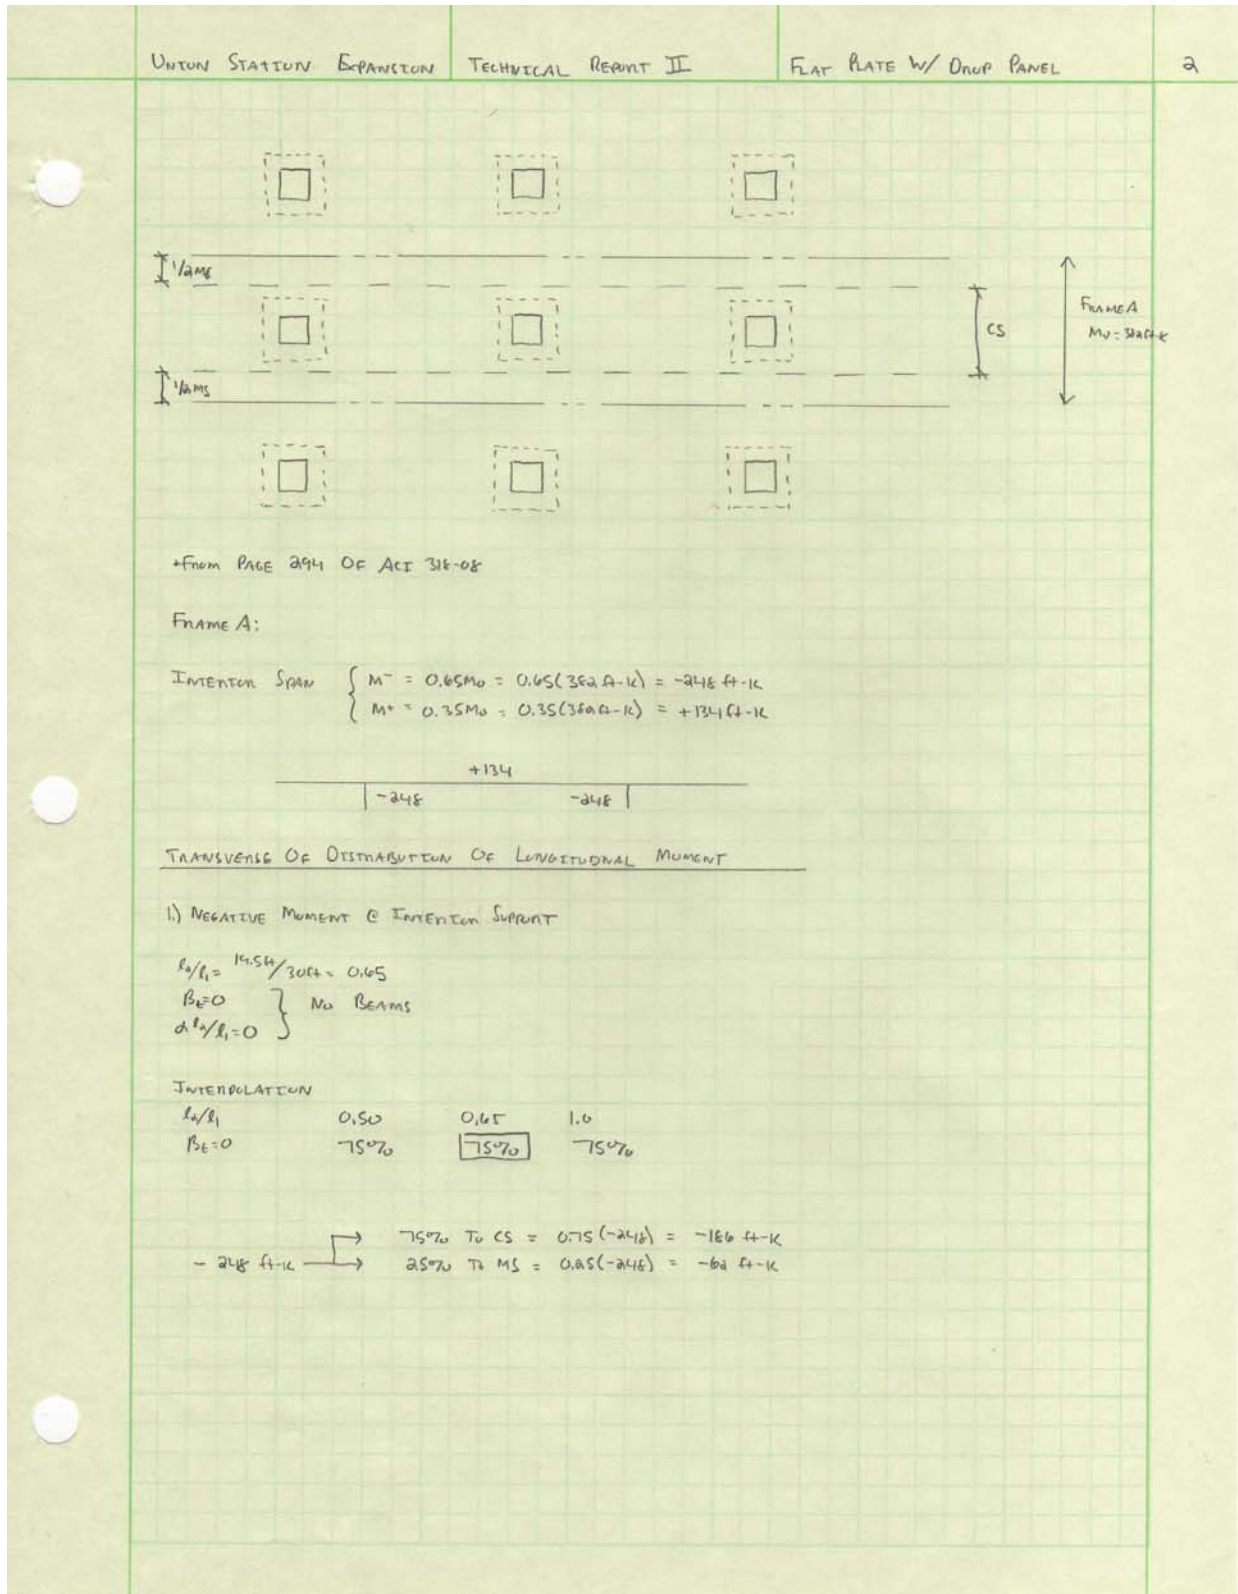 UNION STATION EXPANSION TECHNICAL REPORT II FLAT PLATE W/ DROP PANEL 2
1/2 MS
FRAME A
CS
Mo = 382 ft-k
1/2 MS
*FROM PAGE 294 OF ACI 318-08
FRAME A:
INTERIOR SPAN { M- = 0.65Mo = 0.65(382 ft-k) = -248 ft-k
M+ = 0.35Mo = 0.35(382 ft-k) = +134 ft-k
+134
-248 -248
TRANSVERSE OF DISTRIBUTION OF LONGITUDNAL MOMENT
1.) NEGATIVE MOMENT @ INTERIOR SUPPORT
l2/l1 = 19.5ft/30ft = 0.65
βt=0 } NO BEAMS
α l2/l1=0
INTERPOLATION
l2/l1 0.50 0.65 1.0
βt=0 75% 75% 75%
75% TO CS = 0.75(-248) = -186 ft-k
- 248 ft-k
25% TO MS = 0.25(-248) = -62 ft-k